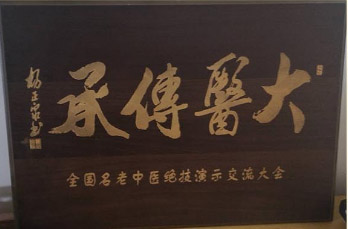 大醫傳承
全国名老中医绝技演示交流大会